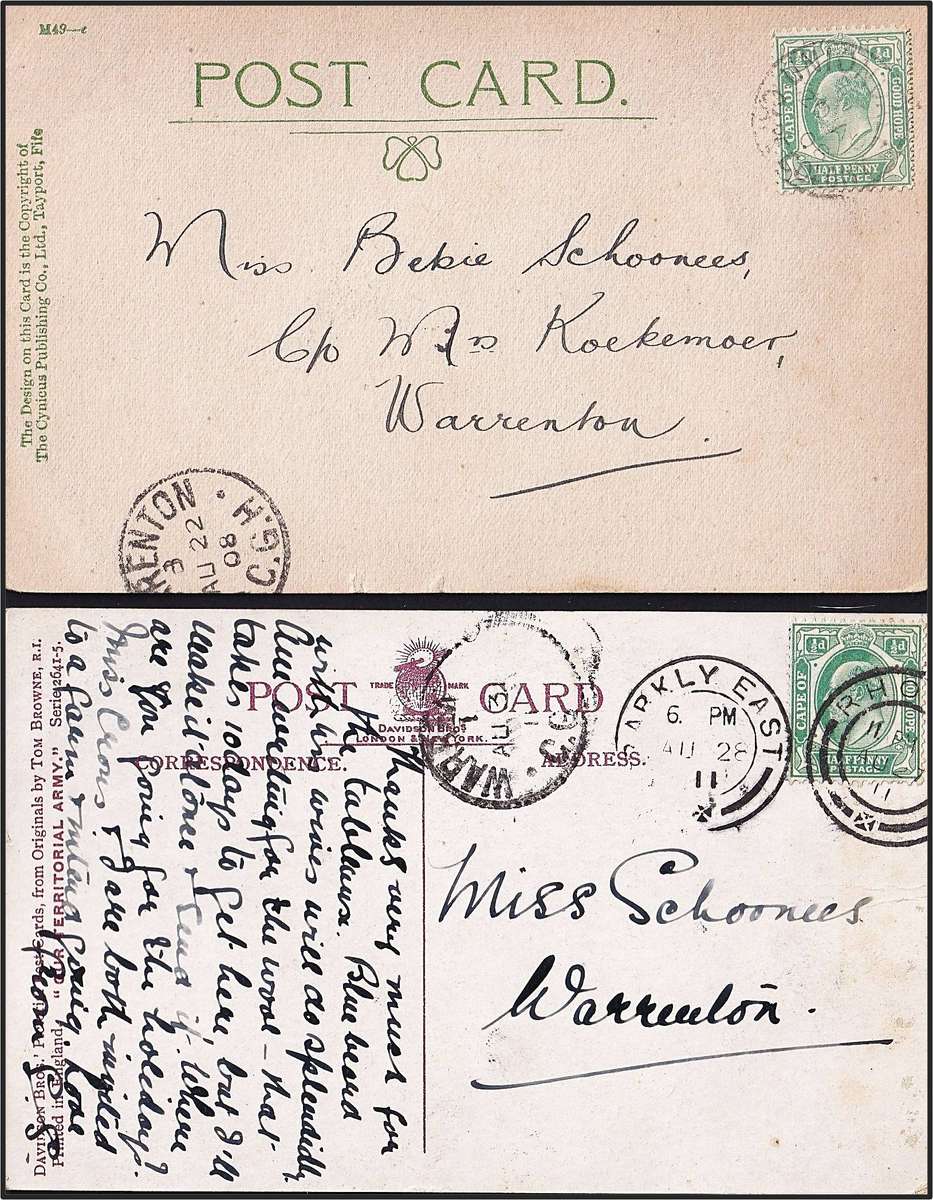 M49—c
POST CARD.
The Design on this Card is the Copyright of
The Cynicus Publishing Co., Ltd., Tayport, Fife
CAPE OF GOOD HOPE
½d ½d
HALFPENNY
POSTAGE
Miss Bekie Schoonees,
C/o Mrs Koekemoer,
Warrenton.
RENTON · C.G.H.
AU 22
08
POST CARD
TRADE MARK
DAVIDSON BROS
LONDON & NEW YORK.
CORRESPONDENCE.
ADDRESS.
DAVIDSON BROS.' Pictorial Post Cards, from Originals by TOM BROWNE, R.I.
Printed in England. "OUR TERRITORIAL ARMY." Series 2641-5.
Thanks very much for
the tableaux. Bluebeard
with his wives will do splendidly
Am waiting for the wool – that
takes 10 days to get here, but I'll
make it done & send it. Where
are you going for the holidays?
Miss Crons & I are both invited
to a farm & intend going. Love
WAR
AU 31
11
ARKLY EAST
6. PM
AU 28
11
½d ½d
CAPE OF
HALFPENNY
POSTAGE
Miss Schoonees
Warrenton.